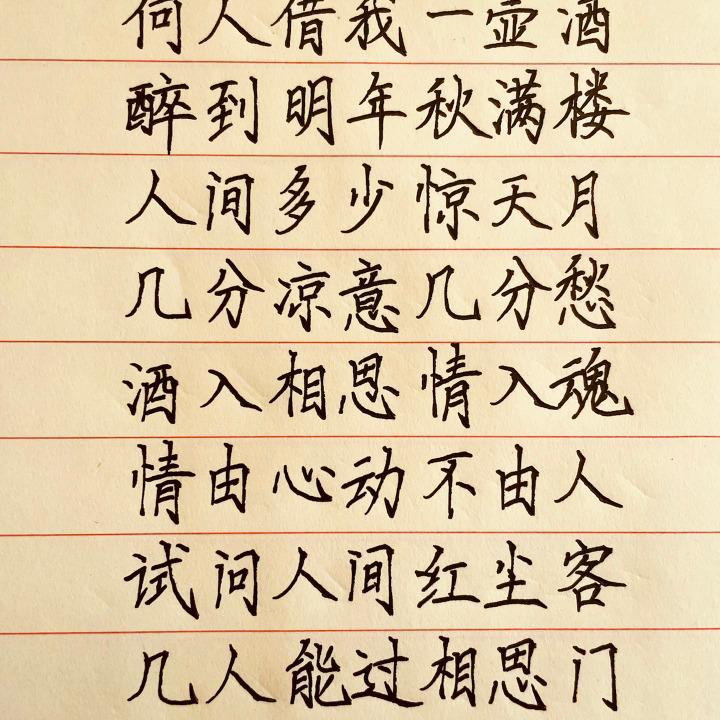 何人借我一壶酒
醉到明年秋满楼
人间多少惊天月
几分凉意几分愁
酒入相思情入魂
情由心动不由人
试问人间红尘客
几人能过相思门